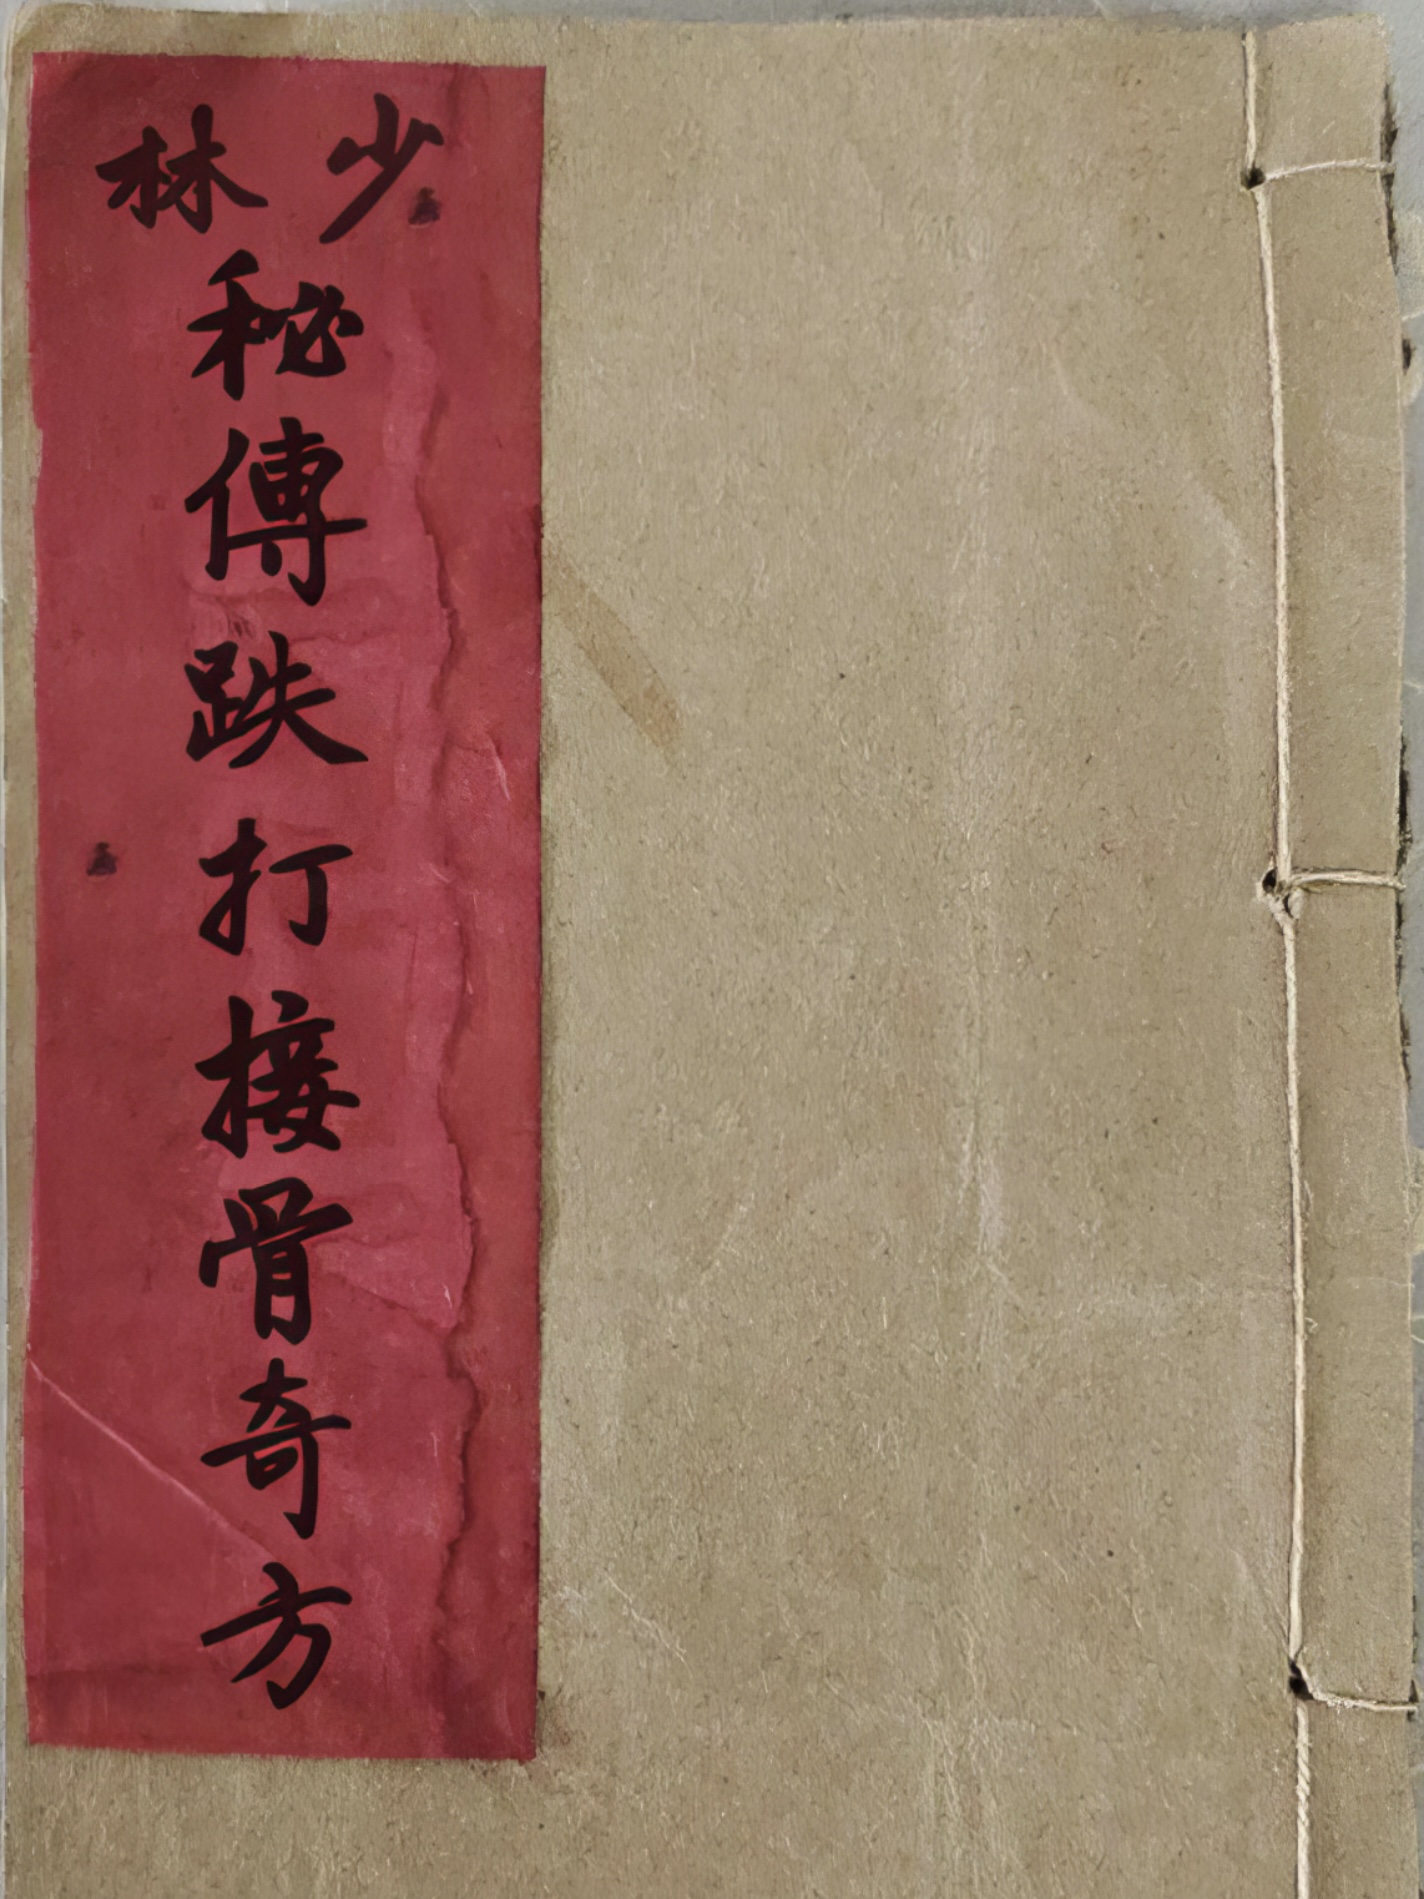 少林
秘傳跌打接骨奇方